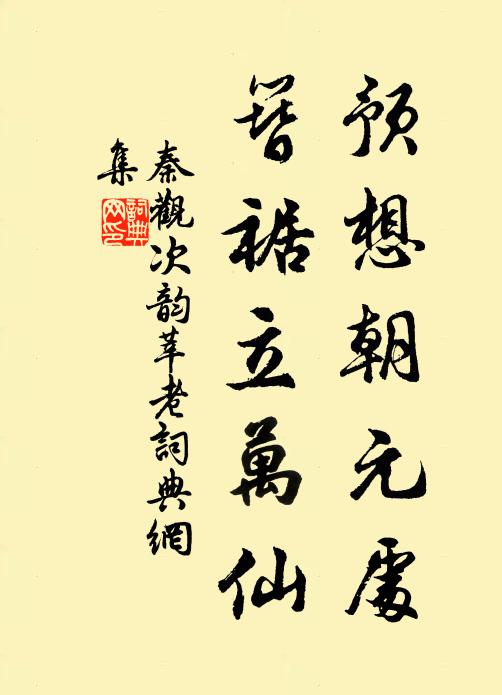 預想朝元處
簪裾立萬仙
秦觀次韵莘老詞典網
集
詞典网印